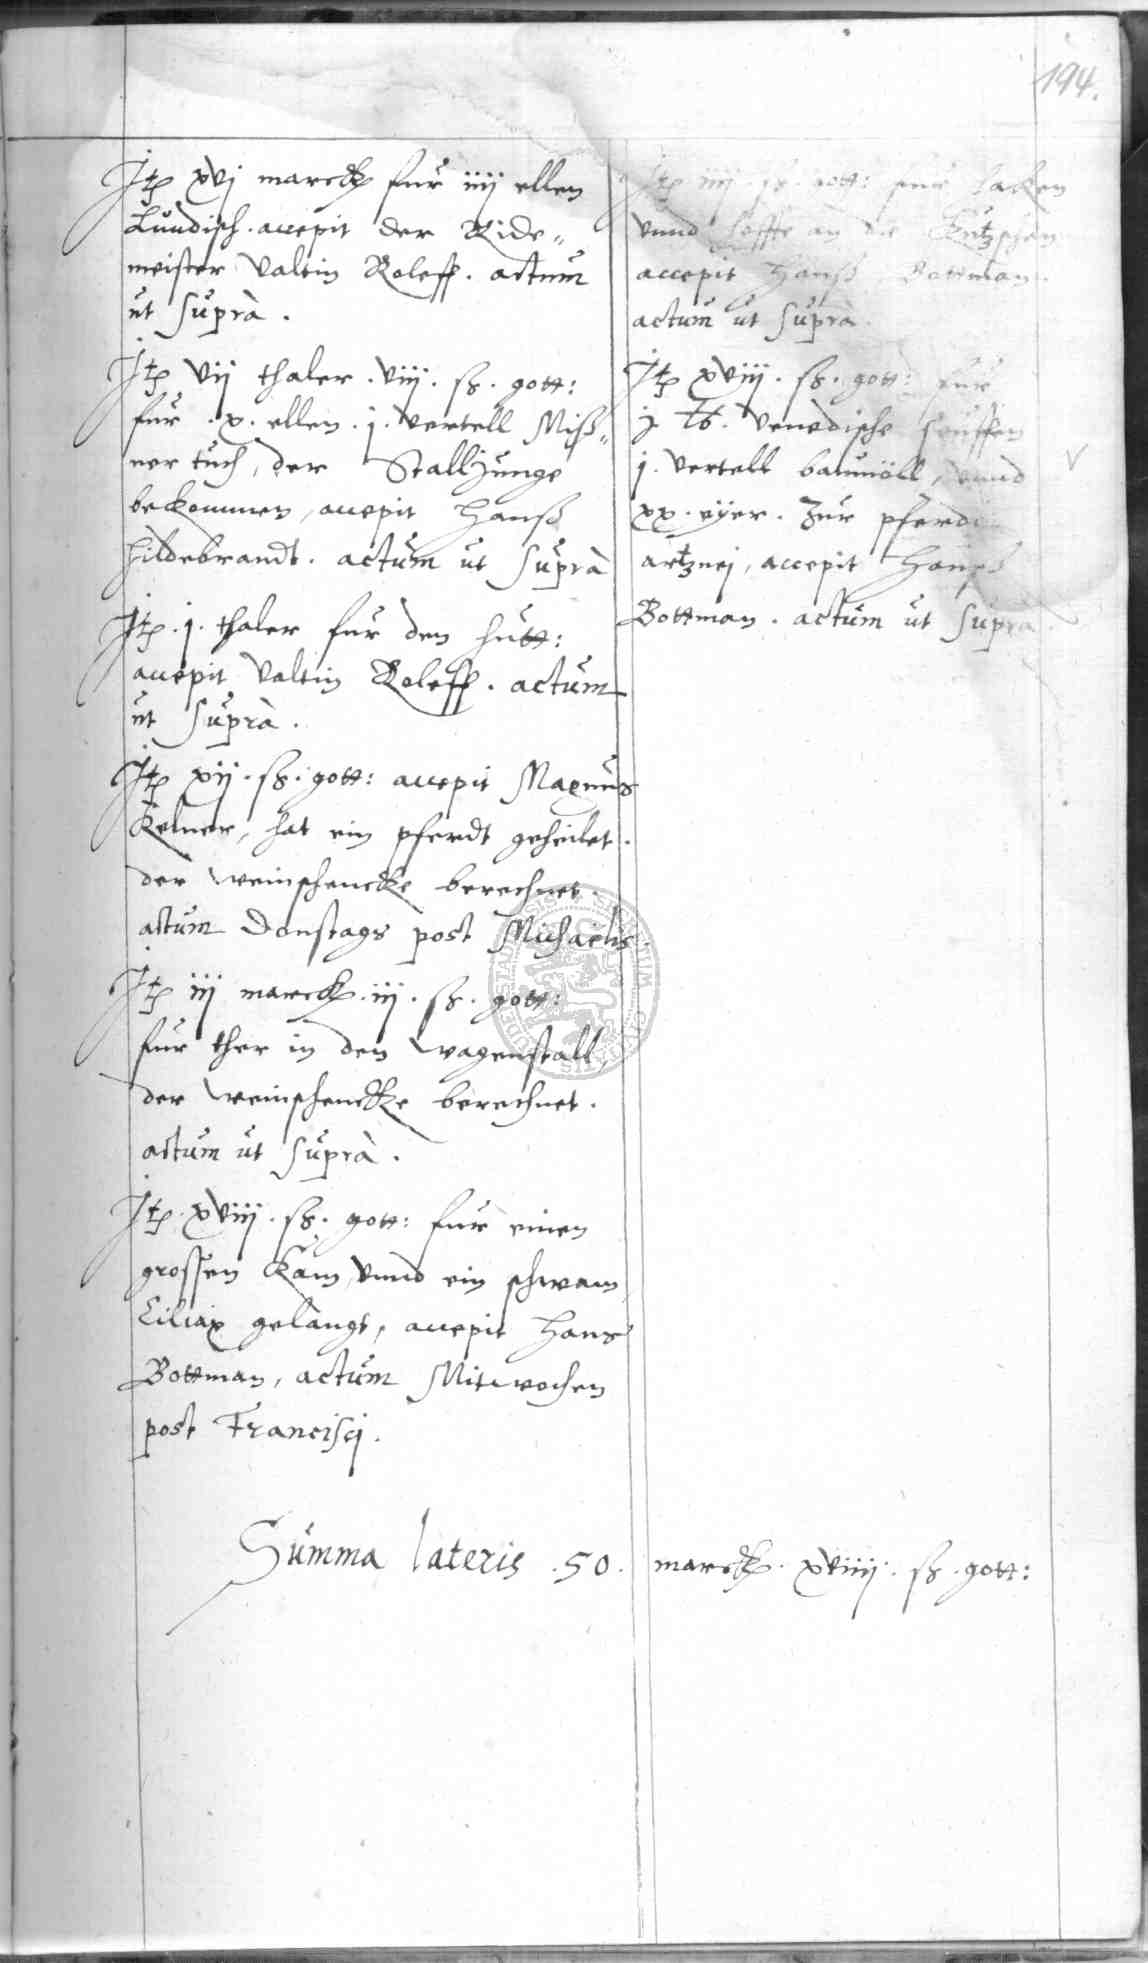 194.
Jtem xvj marck fur iiij ellen
Lundisch. accepit der Ride„
meister Valtin Roleff. actum
ut suprà.
Jtem vij thaler. viij. ß. gott:
fur .x. ellen. j. vertell Miß„
ner tuch, der Stalljunge
bekommen, accepit Hanß
Hildebrandt. actum ut suprà
Jtem .j. thaler fur den hutt:
accepit Valtin Roleff. actum
ut suprà.
Jtem xij. ß. gott: accepit Magnus
Kelner, hat ein pferdt geheilet.
der weinschencke berechnet.
actum Donstags post Michaelis.
Jtem iij marck. iij. ß. gott:
fur ther in den wagenstall,
der weinschencke berechnet.
actum ut suprà.
Jtem. xviij. ß. gott: fur einen
grossen kam, vnnd ein schwam
Ciliax gelangt, accepit Hans
Bottman, actum Mitwochen
post Francisci.
Jtem iiij. ß. gott: fur haken
vnnd an die
accepit Hanß Bottman.
actum ut suprà.
Jtem xviij. ß. gott: fur
j ℔. Venedische seuffen
j. vertell baumöll, vnnd
xx. eÿer. Zur pferde
artznej, accepit Hanß
Bottman. actum ut supra.
Summa lateris .50. marck. xviiij. ß. gott: